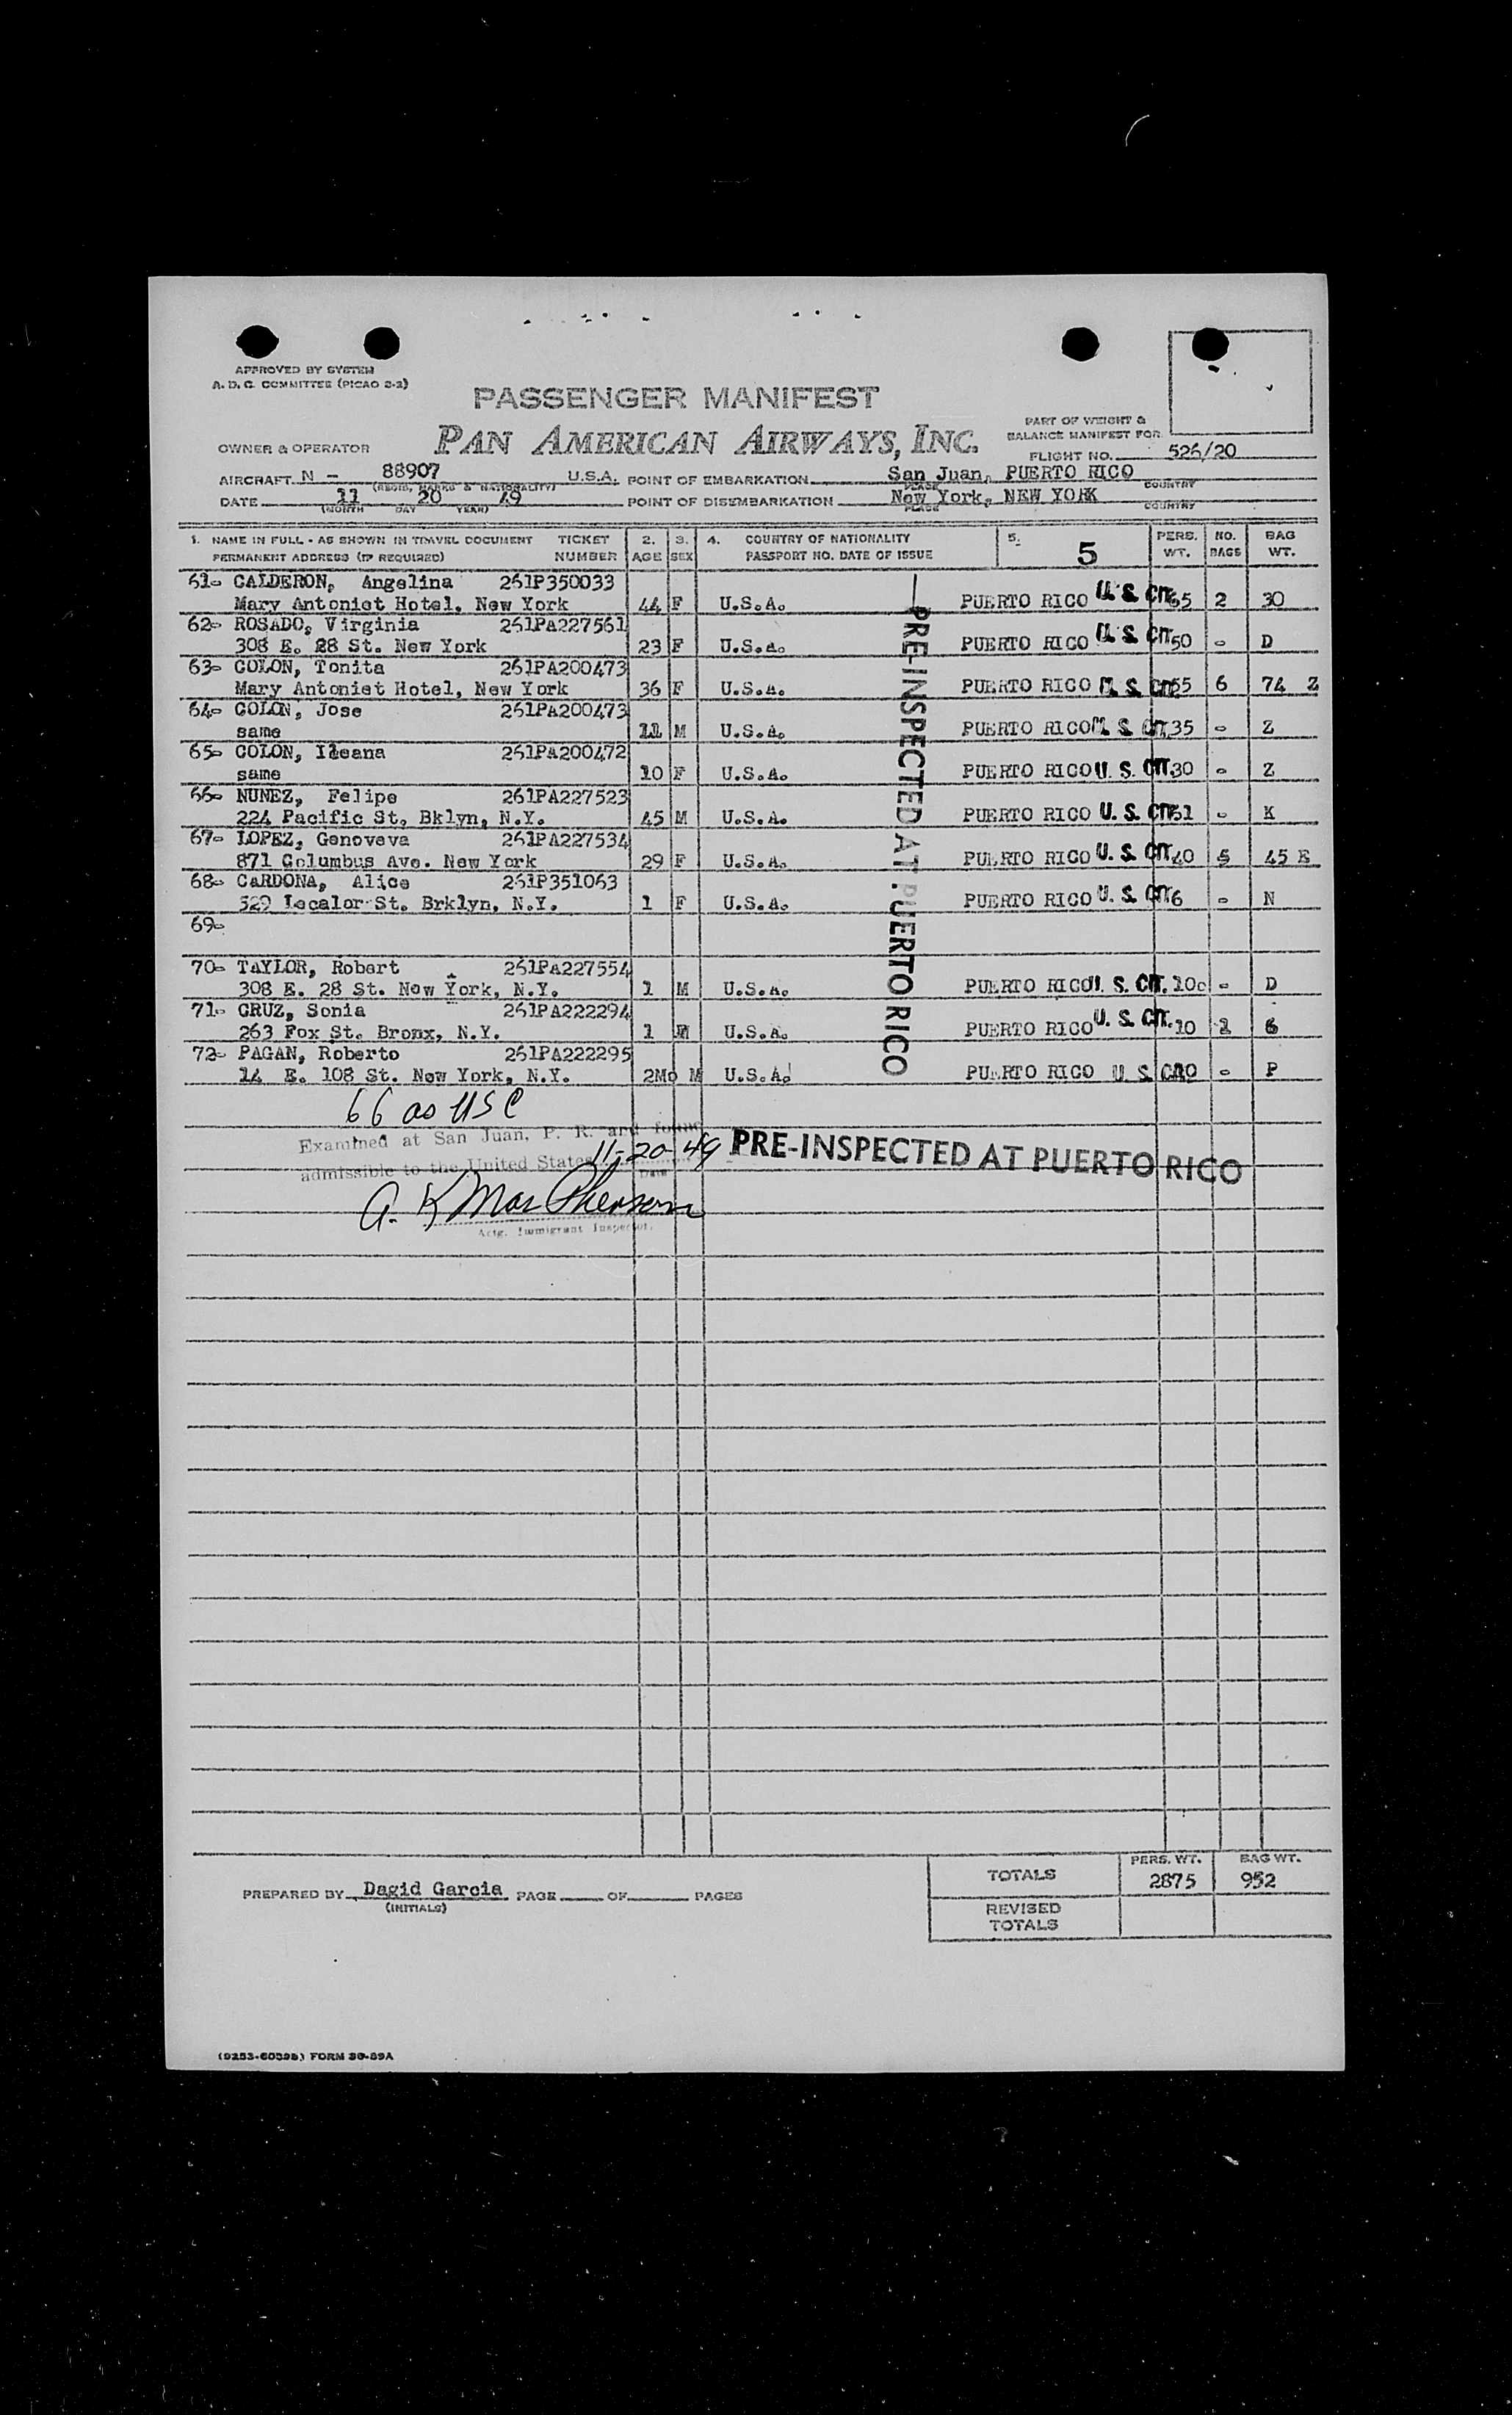 APPROVED BY SYSTEM
A. D. C. COMMITTEE (PICAO 2-2)
PASSENGER MANIFEST
PAN AMERICAN AIRWAYS, INC.
PART OF WEIGHT &
BALANCE MANIFEST FOR
OWNER & OPERATOR
FLIGHT NO. 526/20
AIRCRAFT N - 88907 U.S.A. POINT OF EMBARKATION San Juan, PUERTO RICO
(REGIS, MARKS & NATIONALITY) PLACE COUNTRY
DATE 11 20 49 POINT OF DISEMBARKATION New York, NEW YORK
(MONTH DAY YEAR) PLACE COUNTRY
1. NAME IN FULL - AS SHOWN IN TRAVEL DOCUMENT TICKET 2. 3. 4. COUNTRY OF NATIONALITY 5. 5 PERS. NO. BAG
PERMANENT ADDRESS (IF REQUIRED) NUMBER AGE SEX PASSPORT NO. DATE OF ISSUE WT. BAGS WT.
61- CALDERON, Angelina 261P350033
Mary Antoniet Hotel, New York 44 F U.S.A. PUERTO RICO U. S. CIT. 65 2 30
62- ROSADO, Virginia 261PA227561
308 E. 28 St. New York 23 F U.S.A. PUERTO RICO U. S. CIT. 50 - D
63- COLON, Tonita 261PA200473
Mary Antoniet Hotel, New York 36 F U.S.A. PUERTO RICO U. S. CIT. 55 6 74 Z
64- COLON, Jose 261PA200473
same 11 M U.S.A. PUERTO RICO U. S. CIT. 35 - Z
65- COLON, Ileana 261PA200472
same 10 F U.S.A. PUERTO RICO U. S. CIT. 30 - Z
66- NUNEZ, Felipe 261PA227523
224 Pacific St, Bklyn, N.Y. 45 M U.S.A. PUERTO RICO U. S. CIT. 51 - K
67- LOPEZ, Genoveva 261PA227534
871 Columbus Ave. New York 29 F U.S.A. PUERTO RICO U. S. CIT. 40 5 45 E
68- CARDONA, Alice 261P351063
529 St. Brklyn, N.Y. 1 F U.S.A. PUERTO RICO U. S. CIT. 6 - N
69-
70- TAYLOR, Robert 261PA227554
308 E. 28 St. New York, N.Y. 1 M U.S.A. PUERTO RICO U. S. CIT. 10 - D
71- CRUZ, Sonia 261PA222294
263 Fox St. Bronx, N.Y. 1 U.S.A. PUERTO RICO U. S. CIT. 10
72- PAGAN, Roberto 261PA222295
14 E. 108 St. New York, N.Y. 2Mo M U.S.A. PUERTO RICO U. S. - P
PRE-INSPECTED AT PUERTO RICO
66 as USC
Examined at San Juan, P. R. and found
admissible to the United States 11-20-49
Date
PRE-INSPECTED AT PUERTO RICO
A. K MacPherson
Actg. Immigrant Inspector.
TOTALS PERS. WT. 2875 BAG WT. 952
PREPARED BY Dagid Garcia PAGE OF PAGES
(INITIALS)
REVISED
TOTALS
FORM 30-89A